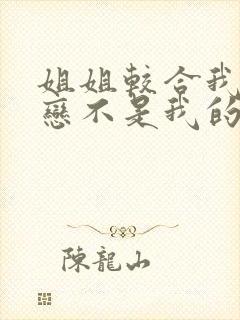 姐姐較合我
戀不是我的
陳龍山